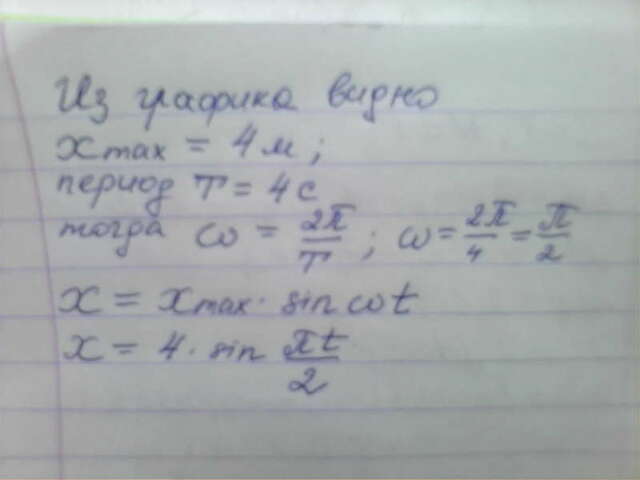 Из графика видно
xmax = 4 м ;
период T = 4 с
тогда ω = 2π/T ; ω = 2π/4 = π/2
x = xmax · sin ωt
x = 4 · sin πt/2